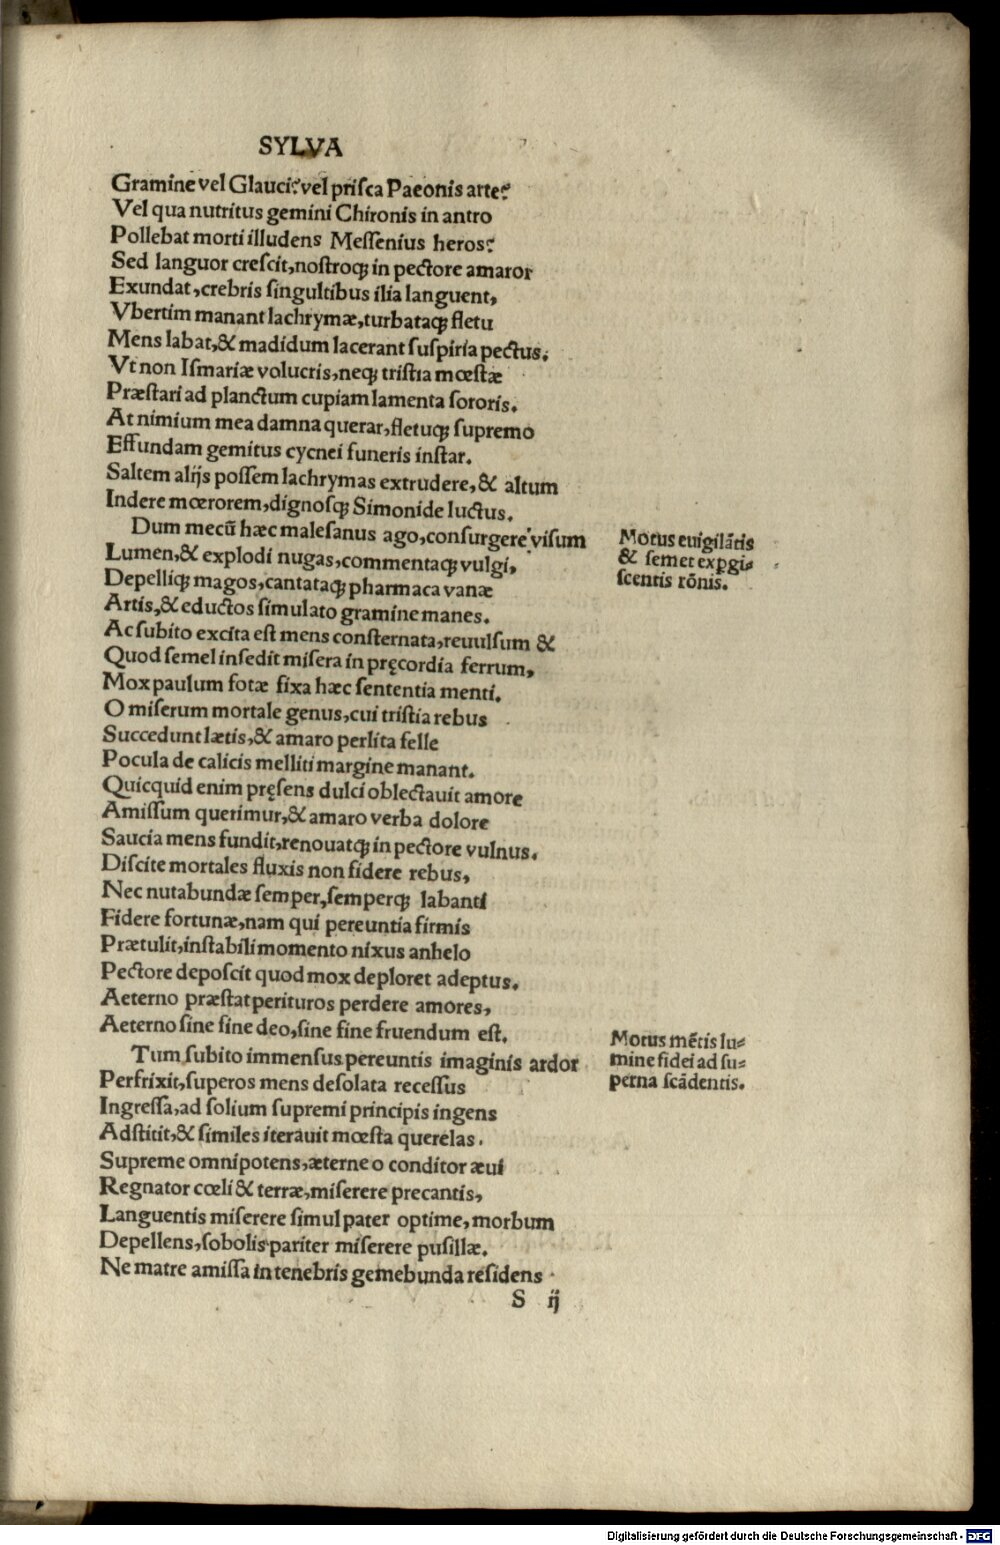 SYLVA
Gramine vel Glauci? vel priſca Paeonis arte?
Vel qua nutritus gemini Chironis in antro
Pollebat morti illudens Meſſenius heros?
Sed languor creſcit, noſtroq; in pectore amaror
Exundat, crebris ſingultibus ilia languent,
Vbertim manant lachrymæ, turbataq; fletu
Mens labat, & madidum lacerant ſuſpiria pectus.
Vt non Iſmariæ volucris, neq; triſtia mœſtæ
Præſtari ad planctum cupiam lamenta ſororis.
At nimium mea damna querar, fletuq; ſupremo
Effundam gemitus cycnei funeris inſtar.
Saltem alijs poſſem lachrymas extrudere, & altum
Indere mœrorem, dignoſq; Simonide luctus.
Dum mecū hæc maleſanus ago, conſurgere viſum
Lumen, & explodi nugas, commentaq; vulgi,
Depelliq; magos, cantataq; pharmaca vanæ
Artis, & eductos ſimulato gramine manes.
Ac ſubito excita eſt mens conſternata, reuulſum &
Quod ſemel inſedit miſera in pręcordia ferrum,
Mox paulum fotæ fixa hæc ſententia menti.
O miſerum mortale genus, cui triſtia rebus
Succedunt lætis, & amaro perlita felle
Pocula de calicis melliti margine manant.
Quicquid enim pręſens dulci oblectauit amore
Amiſſum querimur, & amaro verba dolore
Saucia mens fundit, renouatq; in pectore vulnus.
Diſcite mortales fluxis non fidere rebus,
Nec nutabundæ ſemper, ſemperq; labanti
Fidere fortunæ, nam qui pereuntia firmis
Prætulit, inſtabili momento nixus anhelo
Pectore depoſcit quod mox deploret adeptus.
Aeterno præſtat perituros perdere amores,
Aeterno ſine fine deo, ſine fine fruendum eſt.
Tum ſubito immenſus pereuntis imaginis ardor
Perfrixit, ſuperos mens deſolata receſſus
Ingreſſa, ad ſolium ſupremi principis ingens
Adſtitit, & ſimiles iterauit mœſta querelas.
Supreme omnipotens, æterne o conditor æui
Regnator cœli & terræ, miſerere precantis,
Languentis miſerere ſimul pater optime, morbum
Depellens, ſobolis pariter miſerere puſillæ.
Ne matre amiſſa in tenebris gemebunda reſidens
S ij
Motus euigilātis
& ſemet exꝑgi⸗
ſcentis rōnis.
Motus mētis lu⸗
mine fidei ad ſu⸗
perna ſcādentis.
Digitalisierung gefördert durch die Deutsche Forschungsgemeinschaft - DFG